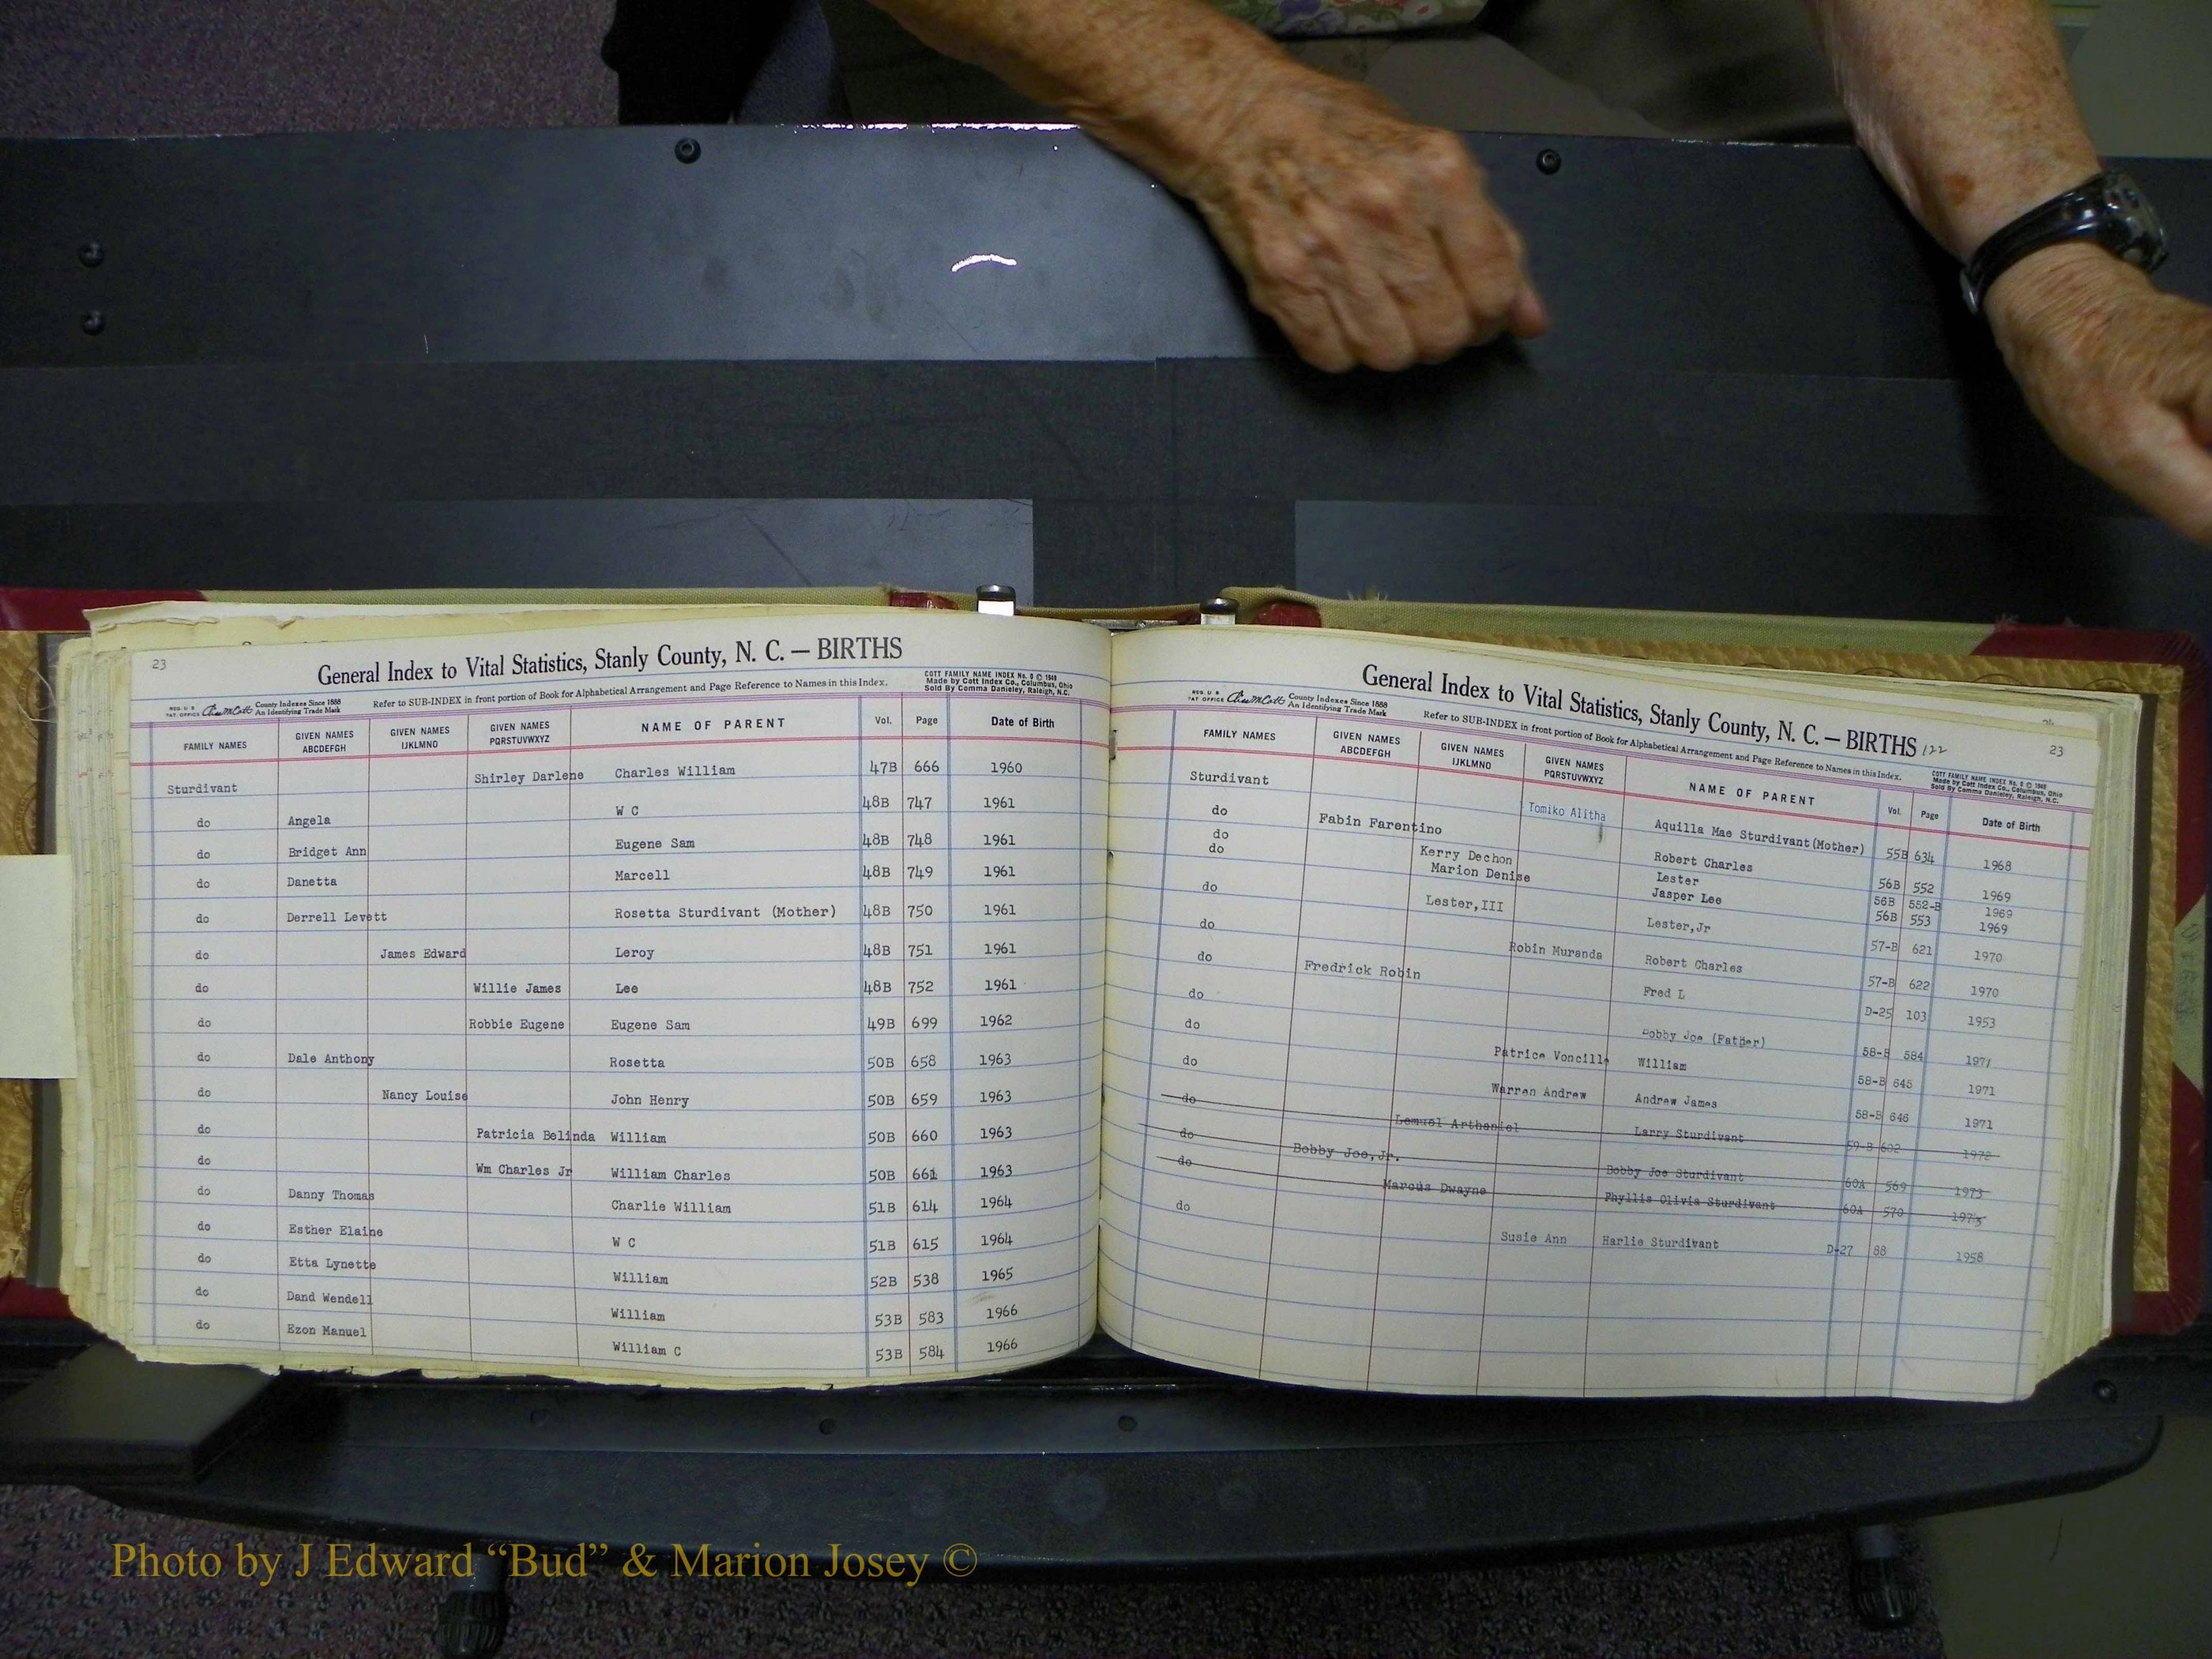 23
General Index to Vital Statistics, Stanly County, N. C. — BIRTHS
REG. U. S. PAT. OFFICE County Indexes Since 1888 An Identifying Trade Mark
Refer to SUB-INDEX in front portion of Book for Alphabetical Arrangement and Page Reference to Names in this Index.
COTT FAMILY NAME INDEX No. 0 © 1949
Made by Cott Index Co., Columbus, Ohio
Sold By Comma Danieley, Raleigh, N.C.
FAMILY NAMES GIVEN NAMES ABCDEFGH GIVEN NAMES IJKLMNO GIVEN NAMES PQRSTUVWXYZ NAME OF PARENT Vol. Page Date of Birth
Sturdivant Shirley Darlene Charles William 47B 666 1960
do Angela W C 48B 747 1961
do Bridget Ann Eugene Sam 48B 748 1961
do Danetta Marcell 48B 749 1961
do Derrell Levett Rosetta Sturdivant (Mother) 48B 750 1961
do James Edward Leroy 48B 751 1961
do Willie James Lee 48B 752 1961
do Robbie Eugene Eugene Sam 49B 699 1962
do Dale Anthony Rosetta 50B 658 1963
do Nancy Louise John Henry 50B 659 1963
do Patricia Belinda William 50B 660 1963
do Wm Charles Jr William Charles 50B 661 1963
do Danny Thomas Charlie William 51B 614 1964
do Esther Elaine W C 51B 615 1964
do Etta Lynette William 52B 538 1965
do Dand Wendell William 53B 583 1966
do Ezon Manuel William C 53B 584 1966
General Index to Vital Statistics, Stanly County, N. C. — BIRTHS 122
23
REG. U. S. PAT. OFFICE County Indexes Since 1888 An Identifying Trade Mark
Refer to SUB-INDEX in front portion of Book for Alphabetical Arrangement and Page Reference to Names in this Index.
COTT FAMILY NAME INDEX No. 0 © 1949
Made by Cott Index Co., Columbus, Ohio
Sold By Comma Danieley, Raleigh, N.C.
FAMILY NAMES GIVEN NAMES ABCDEFGH GIVEN NAMES IJKLMNO GIVEN NAMES PQRSTUVWXYZ NAME OF PARENT Vol. Page Date of Birth
Sturdivant Tomiko Alitha Aquilla Mae Sturdivant(Mother) 55B 634 1968
do Fabin Farentino Robert Charles 56B 552 1969
do Kerry Dechon Lester 56B 552-B 1969
do Marion Denise Jasper Lee 56B 553 1969
do Lester,III Lester,Jr 57-B 621 1970
do Robin Muranda Robert Charles 57-B 622 1970
do Fredrick Robin Fred L D-25 103 1953
do Bobby Joe (Father) 58-B 584 1971
do Patrice Voncille William 58-B 645 1971
do Warren Andrew Andrew James 58-B 646 1971
do Lemuel Arthaniel Larry Sturdivant 59-B 602 1972
do Bobby Joe,Jr. Bobby Joe Sturdivant 60A 569 1973
do Marcus Dwayne Phyllis Olivia Sturdivant 60A 570 1973
do Susie Ann Harlie Sturdivant D-27 88 1958
Photo by J Edward “Bud” & Marion Josey ©